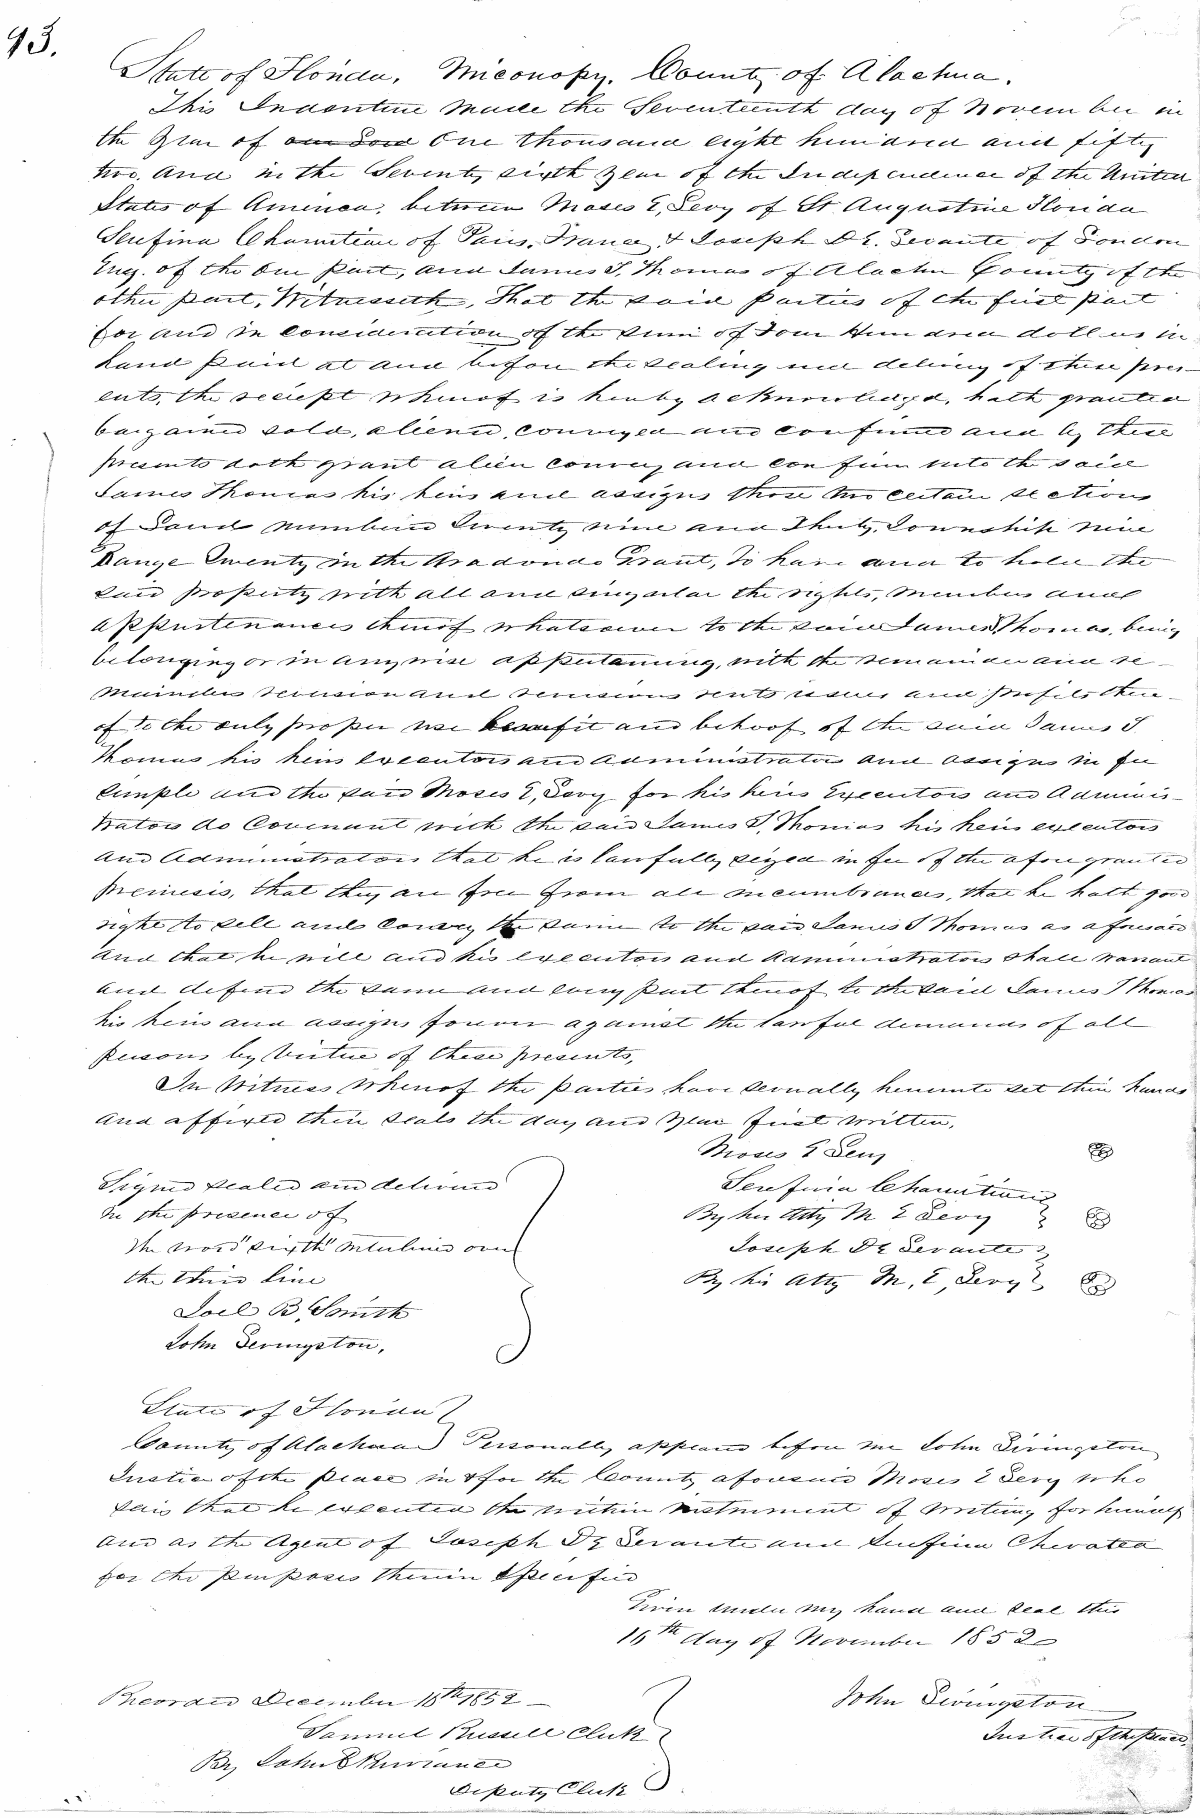 93.
State of Florida. Miconopy. County of Alachua.
This Indenture made the Seventeenth day of November in
the year of our Lord One thousand eight hundred and fifty
two. and in the Seventy sixth year of the Independence of the United
States of America. between Moses E. Levy of St Augustine Florida
Serefina Chauvitiau of Paris, France, & Joseph De Levante of London
Eng. of the one part, and James T. Thomas of Alachu County of the
other part, Witnesseth, That the said parties of the first part
for and in consideration of the sum of Four Hundred dollars in
hand paid at and before the sealing and delivery of these pres-
ents, the reciept whereof is hereby acknowledged, hath granted
bargained sold, aliened, conveyed and confirmed and by these
presents doth grant alien convey and confirm unto the said
James Thomas his heirs and assigns those two certain sections
of Land numbered Twenty nine and Thirty, Township nine
Range Twenty in the Aradondo Grant, To have and to hold the
said property with all and singular the rights, members and
appurtenances thereof whatsoever to the said James Thomas, being
belonging or in any wise appertaining, with the remainder and re-
mainders reversion and reversions rents issues and profits there-
of to the only proper use benefit and behoof of the said James T
Thomas his heirs executors and administrators and assigns in fee
simple and the said Moses E, Levy for his heirs Executors and Adminis-
trators do Covenant with the said James T, Thomas his heirs executors
and Administrators that he is lawfully seized in fee of the afore granted
premisis, that they are free from all incumbrances, that he hath good
right to sell and convey the same to the said James T Thomas as aforesaid
and that he will and his executors and administrators shall warrant
and defend the same and every part thereof to the said James T Thomas
his heirs and assigns forever against the lawful demands of all
persons by virtue of these presents,
In Witness whereof the parties have severally hereunto set their hands
and affixed their seals the day and year first written.
Moses E Levy
Signed sealed and delivered
in the presence of
the word "sixth" interlined over
the third line
Joel B. Smith
John Levingston,
Serefina Chauvitiau
By her Atty M E Levy
Joseph De Levante
By his Atty M, E, Levy
State of Florida
County of Alachua Personally appeared before me John Livingston
Justice of the peace in & for the County aforesaid Moses E Levy who
said that he executed the within instrument of writing for himself
and as the Agent of Joseph De Levante and Serefina
for the purposes therein specified
Given under my hand and seal this
16th day of November 1852
Recorded December 18th 1852
Samuel Russell Clerk
By John
Deputy Clerk
John Livingston
Justice of the peace.